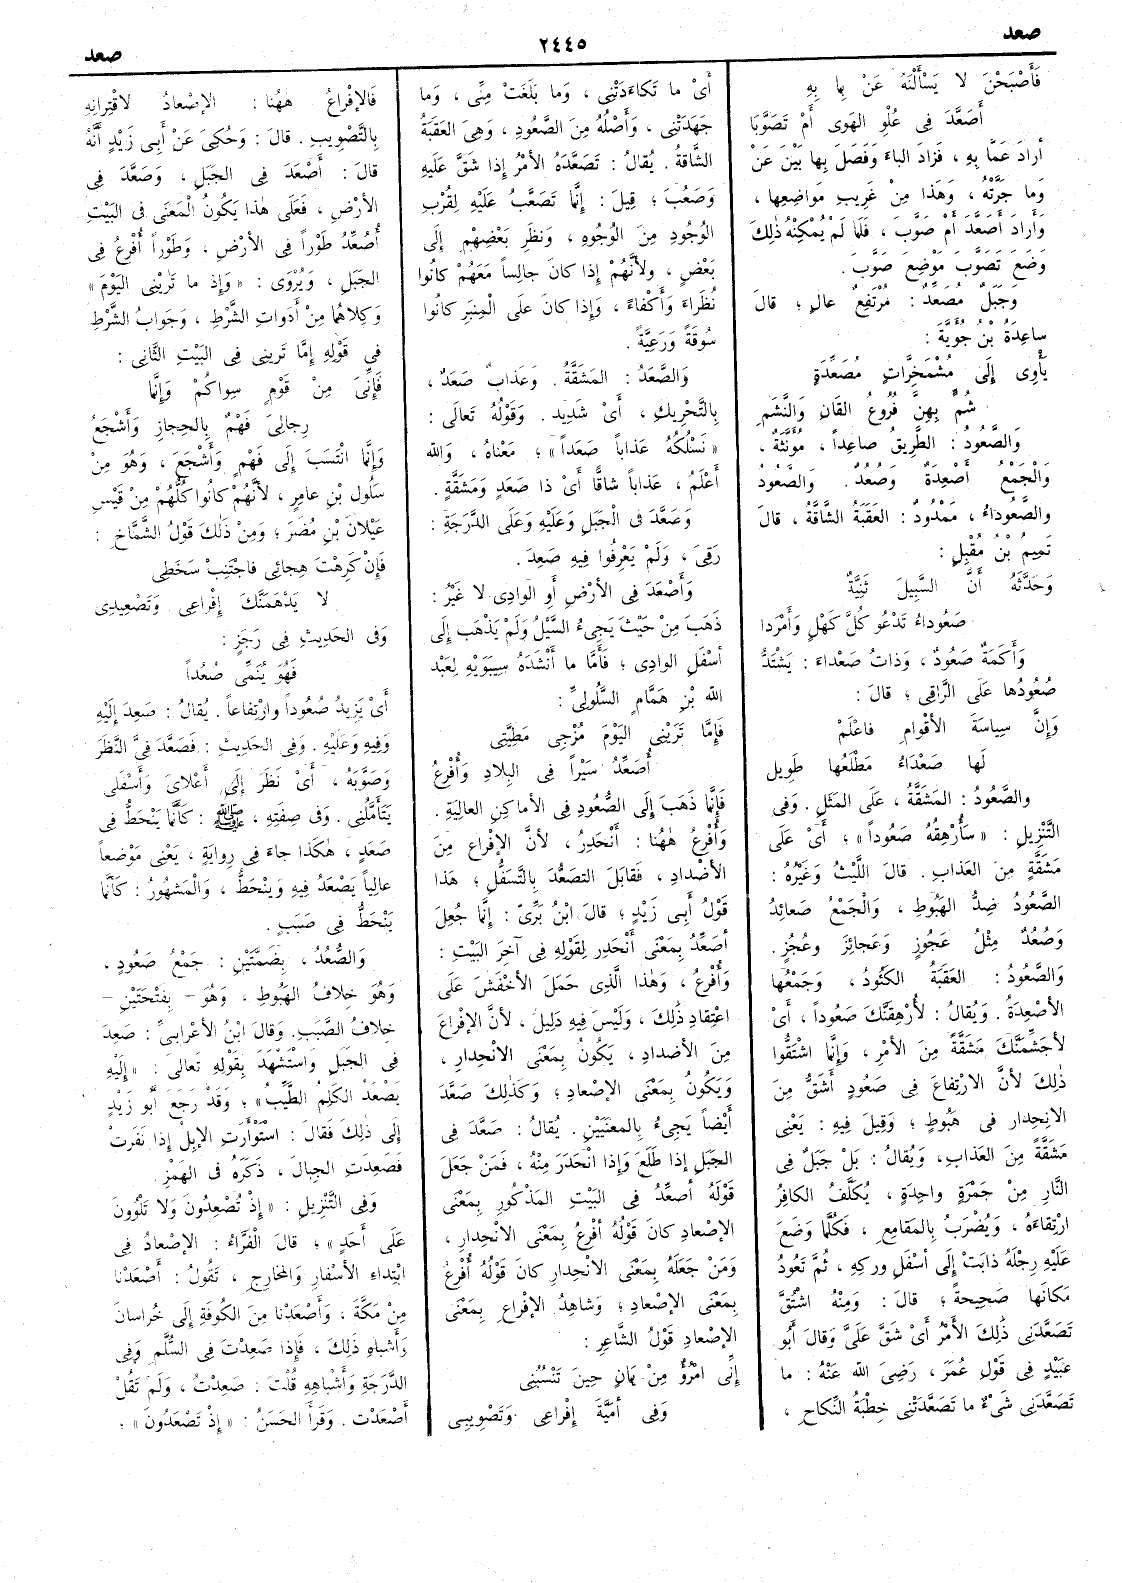 صعد
٢٤٤٥
صعد
فَأَصْبَحْنَ لا يَسْأَلْنَهُ عَنْ بِما بِهِ
أَصَعَّدَ فِى عُلْوِ الهَوَى أَمْ تَصَوَّبَا
أرادَ عَمَّا بِهِ ، فَزادَ الباءَ وَفَصَلَ بِها بَيْنَ عَنْ
وَما جَرَّتْهُ ، وَهَذا مِنْ غَرِيبِ مَواضِعِها ،
وَأَرادَ أَصَعَّدَ أَمْ صَوَّبَ ، فَلَمَّا لَمْ يُمْكِنْهُ ذٰلِكَ
وَضَعَ تَصَوَّبَ مَوْضِعَ صَوَّبَ .
وَجَبَلٌ مُصَعِّدٌ : مُرْتَفِعٌ عالٍ ؛ قالَ
ساعِدَةُ بْنُ جُؤَيَّةَ :
يَأْوِى إِلَى مُشْمَخِرَّاتٍ مُصَعِّدَةٍ
شُمٍّ بِهِنَّ فُرُوعُ القَانِ وَالنَّشَمِ
وَالصَّعُودُ : الطَّرِيقُ صاعِداً ، مُؤَنَّثَةٌ ،
وَالْجَمْعُ أَصْعِدَةٌ وَصُعُدٌ . وَالصَّعُودُ
والصَّعُوداءُ ، مَمْدُودٌ : العَقَبَةُ الشَّاقَّةُ ، قالَ
تَمِيمُ بْنُ مُقْبِلٍ :
وَحَدَّثَهُ أَنَّ السَّبِيلَ ثَنِيَّةٌ
صَعُوداءُ تَدْعُو كُلَّ كَهْلٍ وَأَمْرَدا
وَأَكَمَةٌ صَعُودٌ ، وَذاتُ صَعْداءَ : يَشْتَدُّ
صُعُودُها عَلَى الرَّاقِى ؛ قالَ :
وَإِنَّ سِياسَةَ الأَقْوامِ فاعْلَمْ
لَها صَعْداءُ مَطْلَعُها طَوِيل
والصَّعُودُ : المَشَقَّةُ ، عَلَى المَثَلِ . وَفِى
التَّنْزِيلِ : « سَأُرْهِقُهُ صَعُوداً » ؛ أَىْ عَلَى
مَشَقَّةٍ مِنَ العَذابِ . قالَ اللَّيْثُ وَغَيْرُهُ :
الصَّعُودُ ضِدُّ الهَبُوطِ ، وَالْجَمْعُ صَعائِدُ
وَصُعُدٌ مِثْلُ عَجُوزٍ وَعَجائِزَ وعُجُزٍ .
وَالصَّعُودُ : العَقَبَةُ الكَئُودُ ، وَجَمْعُها
الأَصْعِدَةُ . وَيُقالُ : لأُرْهِقَنَّكَ صَعُوداً ، أَىْ
لأُجَشِّمَنَّكَ مَشَقَّةً مِنَ الأَمْرِ ، وَإِنَّما اشْتَقُّوا
ذٰلِكَ لأَنَّ الارْتِفاعَ فِى صَعُودٍ أَشَقُّ مِنَ
الانْحِدارِ فى هَبُوطٍ ؛ وَقِيلَ فِيهِ : يَعْنِى
مَشَقَّةً مِنَ العَذابِ، وَيُقالُ : بَلْ جَبَلٌ فِى
النَّارِ مِنْ جَمْرَةٍ واحِدَةٍ ، يُكَلَّفُ الكافِرُ
ارْتِقاءَهُ ، وَيُضْرَبُ بِالمَقامِعِ ، فَكُلَّما وَضَعَ
عَلَيْهِ رِجْلَهُ ذابَتْ إِلَى أسْفَلِ وركِهِ ، ثُمَّ تَعُودُ
مَكانَها صَحِيحَةً ؛ قالَ : وَمِنْهُ اشْتُقَّ
تَصَعَّدَنِى ذٰلِكَ الأَمْرُ أَىْ شَقَّ عَلَىَّ وَقالَ أَبُو
عبَيْدٍ فِى قَوْلِ عُمَرَ ، رَضِىَ الله عَنْهُ : ما
تَصَعَّدَنِى شَىْءٌ ما تَصَعَّدَتْنِى خِطْبَةُ النِّكاحِ ،
أَىْ ما تَكاءَدَتْنِى ، وَما بَلَغَتْ مِنِّى ، وَما
جَهَدَتْنِى ، وَأَصْلُهُ مِنَ الصَّعُودِ ، وَهِىَ العَقَبَةُ
الشَّاقةُ . يُقالُ : تَصَعَّدَهُ الأَمْرُ إِذا شَقَّ عَلَيْهِ
وَصَعُبَ ؛ قِيلَ : إِنَّما تَصَعَّبُ عَلَيْهِ لِقُرْبِ
الوُجُوهِ مِنَ الوُجُوهِ ، وَنَظَرِ بَعْضِهِمْ إِلَى
بَعْضٍ ، ولأَنَّهُمْ إِذا كانَ جالِساً مَعَهُمْ كانُوا
نُظَراءَ وَأَكْفاءً ، وَإِذا كانَ عَلَى الْمِنْبَرِ كانُوا
سُوقَةً وَرَعِيَّةً .
وَالصَّعَدُ : المَشَقَّةُ . وَعَذابٌ صَعَدٌ ،
بِالتَّحْرِيكِ ، أَىْ شَدِيد . وَقَوْلُهُ تَعالَى :
« نَسْلُكْهُ عَذاباً صَعَداً » ؛ مَعْناهُ ، وَالله
أَعْلَمُ ، عَذاباً شاقًّا أَىْ ذا صَعَدٍ وَمَشَقَّةٍ .
وَصَعَّدَ فى الْجَبَلِ وَعَلَيْهِ وَعَلَى الدَّرَجَةِ :
رَقِىَ ، وَلَمْ يَعْرِفُوا فِيهِ صَعِدَ .
وَأَصْعَدَ فِى الأَرْضِ أَوِ الوادِى لا غَيْرُ :
ذَهَبَ مِنْ حَيْثُ يَجِىءُ السَّيْلُ وَلَمْ يَذْهَبْ إِلَى
أَسْفَلِ الوادِى ؛ فَأَمَّا ما أَنْشَدَهُ سِيبَوَيْهِ لِعَبْد
الله بْنِ هَمَّامٍ السَّلُولِىِّ :
فَإِمَّا تَرَيْنِى اليَوْمَ مُزْجِى مَطِيَّتِى
أُصَعِّدُ سَيْراً فِى البِلادِ وَأُفْرِعُ
فَإِنَّما ذَهَبَ إِلَى الصُّعُودِ فِى الأَماكِنِ العالِيَةِ .
وَأُفْرِعُ هٰهُنا : أَنْحَدِرُ ، لأَنَّ الإِفْراعَ مِنَ
الأَضْدادِ ، فَقابَلَ التصَعُّدَ بِالتَّسَفُّلِ ؛ هَذا
قَوْلُ أَبِى زَيْدٍ ؛ قالَ ابْنُ بَرِّىّ : إِنَّما جُعِلَ
أصَعِّدُ بِمَعْنَى أَنْحَدِر لِقَوْلِهِ فِى آخَرَ البَيْتِ :
وَأُفْرِعُ ، وَهٰذا الَّذِى حَمَلَ الأَخْفَشَ عَلَى
اعْتِقادِ ذٰلِكَ ، وَلَيْسَ فِيهِ دَلِيلٌ ، لأَنَّ الإِفْراعَ
مِنَ الأَضْدادِ ، يَكُونُ بِمَعْنَى الانْحِدارِ ،
وَيَكُونُ بِمَعْنَى الإِصْعادِ ؛ وَكَذٰلِكَ صَعَّدَ
أَيْضاً يَجِىءُ بِالمعْنَيَيْنِ . يُقالُ : صَعَّدَ فِى
الجَبَلِ إِذا طَلَعَ وَإِذا انْحَدَرَ مِنْهُ ، فَمَنْ جَعَلَ
قَوْلَهُ أصَعِّدُ فِى البَيْتِ المَذْكُورِ بِمَعْنَى
الإِصْعادِ كانَ قَوْلُهُ أفْرِعُ بِمَعْنَى الانْحِدارِ ،
وَمَنْ جَعَلَهُ بِمَعْنَى الانْحِدارِ كانَ قَوْلُهُ أُفْرِعُ
بِمَعْنَى الإِصْعادِ ؛ وَشاهِدُ الإِفْراعِ بِمَعْنَى
الإِصْعادِ قَوْلُ الشَّاعِرِ :
إِنِّى امْرُؤٌ مِنْ يَمانٍ حِينَ تَنْسُبُنِى
وَفِى أُمَيَّةَ إِفْراعِى وَتَصْوِيبِى
فَالإِفْراعُ هٰهُنا : الإِصْعادُ لاقْتِرانِهِ
بِالتَّصْوِيبِ . قالَ : وَحُكِىَ عَنْ أَبِى زَيْدٍ أَنَّهُ
قالَ : أَصْعَدَ فِى الجَبَلِ ، وَصَعَّدَ فِى
الأَرْضِ ، فَعَلَى هٰذا يَكُونُ الْمَعْنَى فى البَيْتِ
أُصَعِّدُ طَوْراً فِى الأَرْضِ ، وَطَوْراً أُفْرِعُ فِى
الجَبَلِ ، وَيُرْوَى : « وَإِذ ما تَرَيْنِى اليَوْمَ »
وَكِلاهُما مِنْ أَدَواتِ الشَّرْطِ ، وَجَوابُ الشَّرْطِ
فِى قَوْلِهِ إِمَّا تَرَينِى فِى البَيْتِ الثَّانِى :
فَإِنِّىَ مِنْ قَوْمٍ سِواكُمْ وَإِنَّما
رِجالِىَ فَهْمٌ بِالحِجازِ وَأَشْجَعُ
وَإِنَّما انْتَسَبَ إِلَى فَهْمٍ وَأَشْجَعَ ، وَهُوَ مِنْ
سَلُولِ بْنِ عامِرٍ ، لأَنَّهُمْ كانُوا كُلُّهُمْ مِنْ قَيْسِ
عَيْلانَ بْنِ مُضَرَ ؛ وَمِنْ ذٰلكَ قَوْلُ الشَّمَّاخِ :
فَإِنْ كَرِهْتَ هِجائِى فاجْتَنِبْ سَخَطِى
لا يَدْهَمَنَّكَ إِفْراعِى وَتَصْعِيدِى
وَفى الحَدِيثِ فِى رَجَزٍ :
فَهُوَ يُنَمِّى صُعُداً
أَىْ يَزِيدُ صُعُوداً وارْتِفاعاً . يُقالُ : صَعِدَ إِلَيْهِ
وَفِيهِ وَعَلَيْهِ . وَفِى الحَدِيثِ : فَصَعَّدَ فِىَّ النَّظَرَ
وَصَوَّبَهُ ، أَىْ نَظَرَ إِلَى أَعْلاىَ وَأَسْفَلِى
يَتَأَمَّلُنِى . وَفى صِفَتِهِ ، ﷺ : كَأَنَّما يَنْحَطُّ فِى
صَعَدٍ ، هٰكَذا جاءَ فِى رِوايَةٍ ، يَعْنِى مَوْضِعاً
عالِياً يَصْعَدُ فِيهِ وَيَنْحَطُّ ، وَالْمَشهُورُ : كَأَنَّما
يَنْحَطُّ فِى صَبَبٍ .
وَالصُّعُدُ ، بِضَمَّتَيْنِ : جَمْعُ صَعُودٍ ،
وَهُوَ خِلافُ الهَبُوطِ ، وَهُوَ – بِفَتْحَتَيْنِ –
خِلافُ الصَّبَبِ. وَقالَ ابْنُ الأَعْرابِىِّ : صَعِدَ
فِى الجَبَلِ وَاسْتَشْهَدَ بِقَوْلِهِ تَعالَى : « إِلَيْهِ
يَصْعَدُ الكَلِمُ الطَّيِّبُ » ؛ وَقَدْ رَجَعَ أَبُو زَيْدٍ
إِلَى ذٰلِكَ فَقالَ : اسْتَوْأَرَتِ الإِبِلُ إِذا نَفَرَتْ
فَصَعِدَتِ الجِبالَ ، ذَكَرَهُ فى الهَمْزِ
وَفِى التَّنْزِيلِ : « إِذْ تُصْعِدُونَ وَلا تَلْوُونَ
عَلَى أَحَدٍ » ؛ قالَ الفَرَّاءُ : الإِصْعادُ فِى
ابْتِداءِ الأَسْفارِ وَالمخارِجِ ، تَقُولُ : أَصْعَدْنا
مِنْ مَكَّةَ ، وَأَصْعَدْنا مِنَ الكُوفَةِ إِلَى خُراسانَ
وَأَشْباهِ ذٰلِكَ ، فَإِذا صَعِدْتَ فِى السُّلَّمِ وَفِى
الدَّرَجَةِ وَأَشْباهِهِ قُلْتَ : صَعِدْتُ ، وَلَمْ تَقُلْ
أَصْعَدْت . وَقَرَأَ الحَسَنُ : « إِذْ تَصْعَدُونَ » ؛